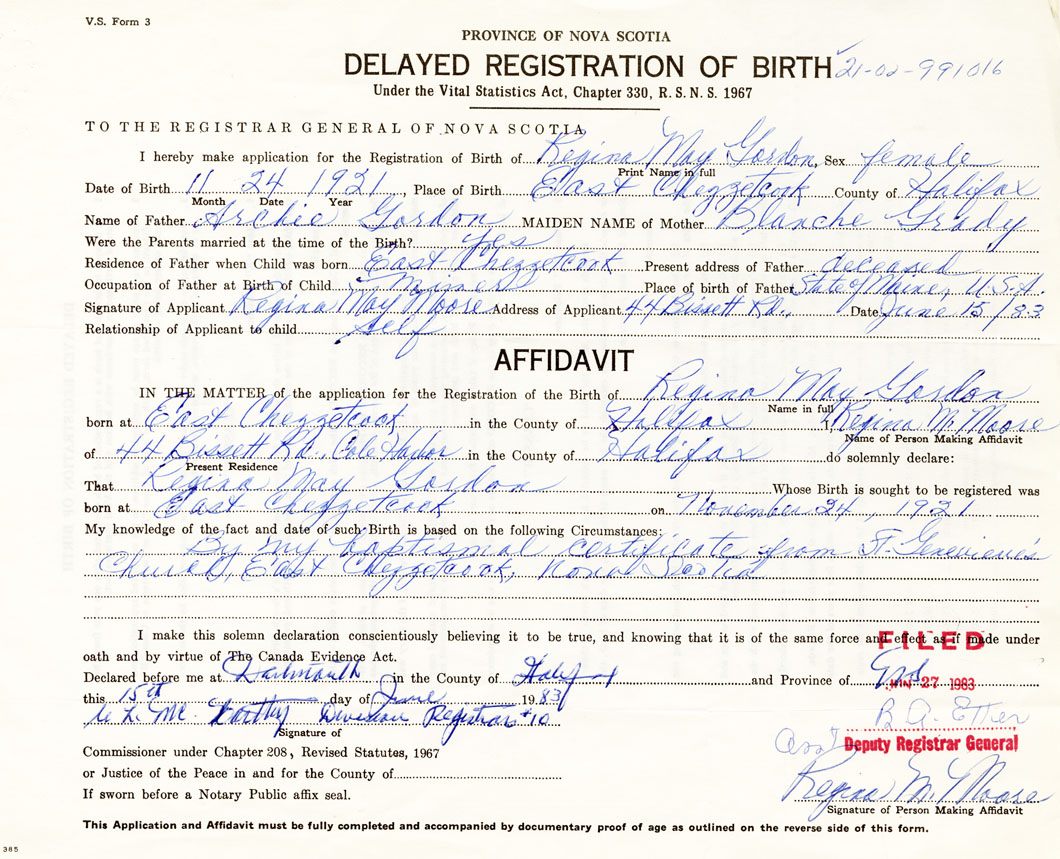 V.S. Form 3
PROVINCE OF NOVA SCOTIA
DELAYED REGISTRATION OF BIRTH 21-02-991016
Under the Vital Statistics Act, Chapter 330, R.S.N.S. 1967
TO THE REGISTRAR GENERAL OF NOVA SCOTIA
I hereby make application for the Registration of Birth of Regina May Gordon, Sex female
Print Name in full
Date of Birth 11 24 1921, Place of Birth East Chezzetcook County of Halifax
Month Date Year
Name of Father Archie Gordon MAIDEN NAME of Mother Blanche Grady
Were the Parents married at the time of the Birth? yes
Residence of Father when Child was born East Chezzetcook Present address of Father deceased
Occupation of Father at Birth of Child Place of birth of Father State of Maine, U.S.A.
Signature of Applicant Regina May Moore Address of Applicant 44 Bissett Rd., Date June 15/83
Relationship of Applicant to child Self
AFFIDAVIT
IN THE MATTER of the application for the Registration of the Birth of Regina May Gordon
Name in full
born at East Chezzetcook in the County of Halifax I, Regina M. Moore
Name of Person Making Affidavit
of 44 Bissett Rd., Cole Harbor in the County of Halifax do solemnly declare:
Present Residence
That Regina May Gordon Whose Birth is sought to be registered was
born at East Chezzetcook on November 24, 1921
My knowledge of the fact and date of such Birth is based on the following Circumstances:
By my baptismal certificate from St. Genevieve's
Church, East Chezzetcook, Nova Scotia
I make this solemn declaration conscientiously believing it to be true, and knowing that it is of the same force and effect as if made under
oath and by virtue of The Canada Evidence Act.
FILED
Declared before me at Dartmouth in the County of Halifax and Province of
JUN 27 1983
this 15th day of June 1983
Division Registrar #10
Signature of
B. A. Etter
Commissioner under Chapter 208, Revised Statutes, 1967
Ass't Deputy Registrar General
or Justice of the Peace in and for the County of
If sworn before a Notary Public affix seal.
Regina M. Moore
Signature of Person Making Affidavit
This Application and Affidavit must be fully completed and accompanied by documentary proof of age as outlined on the reverse side of this form.
385